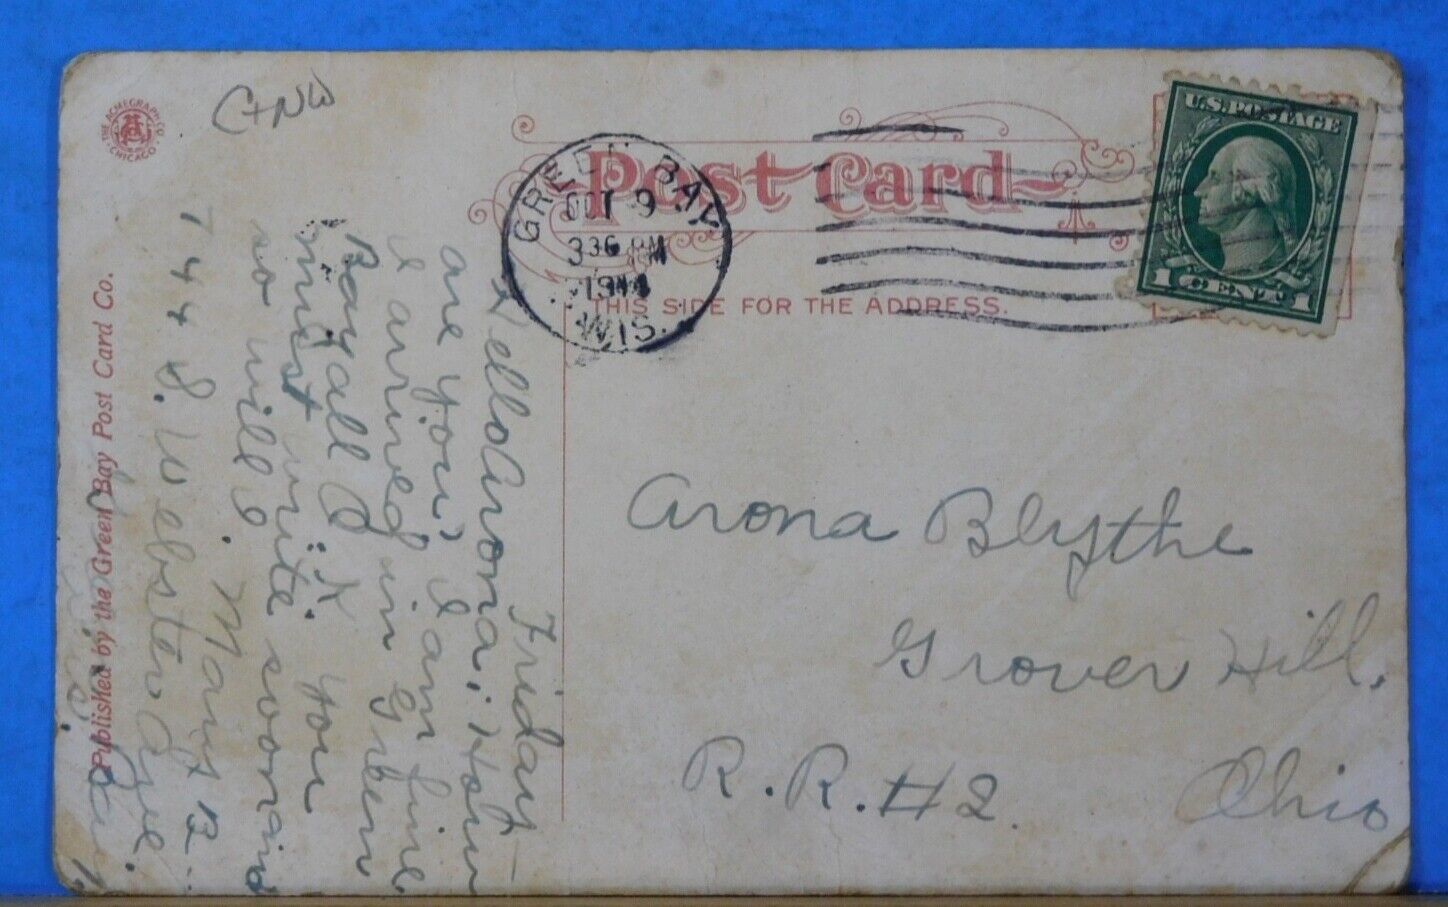 C+NW
THE ACMEGRAPH CO.
CHICAGO
Published by the Green Bay Post Card Co.
Post Card
THIS SIDE FOR THE ADDRESS.
GREEN BAY
OCT 9
336 PM
1914
WIS.
U.S. POSTAGE
1 CENT 1
Friday
Hello Arona: How
are you; I am fine
I arrived in Green
Bay all O.K. You
must write soon
so will
Mary B.
744 S. Webster Ave.
Arona Blythe
Grover Hill,
R.R. #2. Ohio